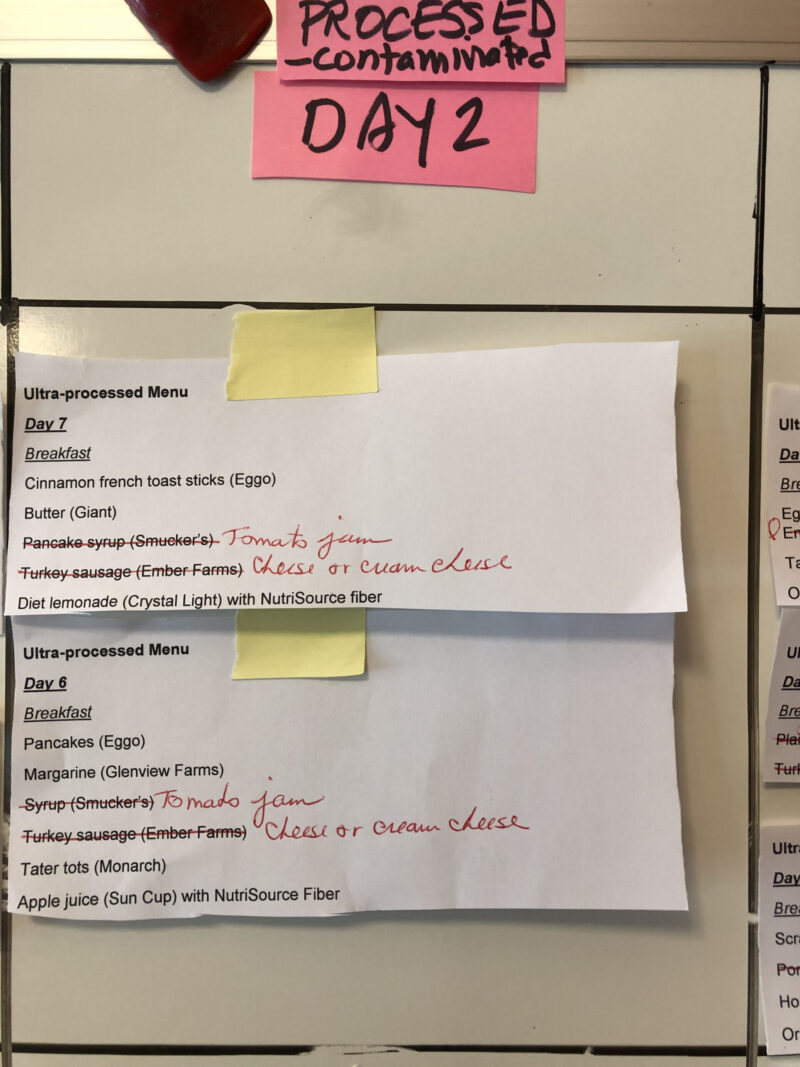 PROCESSED
-contaminated
DAY 2
Ultra-processed Menu
Day 7
Breakfast
Cinnamon french toast sticks (Eggo)
Butter (Giant)
Pancake syrup (Smucker's) Tomato jam
Turkey sausage (Ember Farms) Cheese or cream cheese
Diet lemonade (Crystal Light) with NutriSource fiber
Ultra-processed Menu
Day 6
Breakfast
Pancakes (Eggo)
Margarine (Glenview Farms)
Syrup (Smucker's) Tomato jam
Turkey sausage (Ember Farms) Cheese or cream cheese
Tater tots (Monarch)
Apple juice (Sun Cup) with NutriSource Fiber